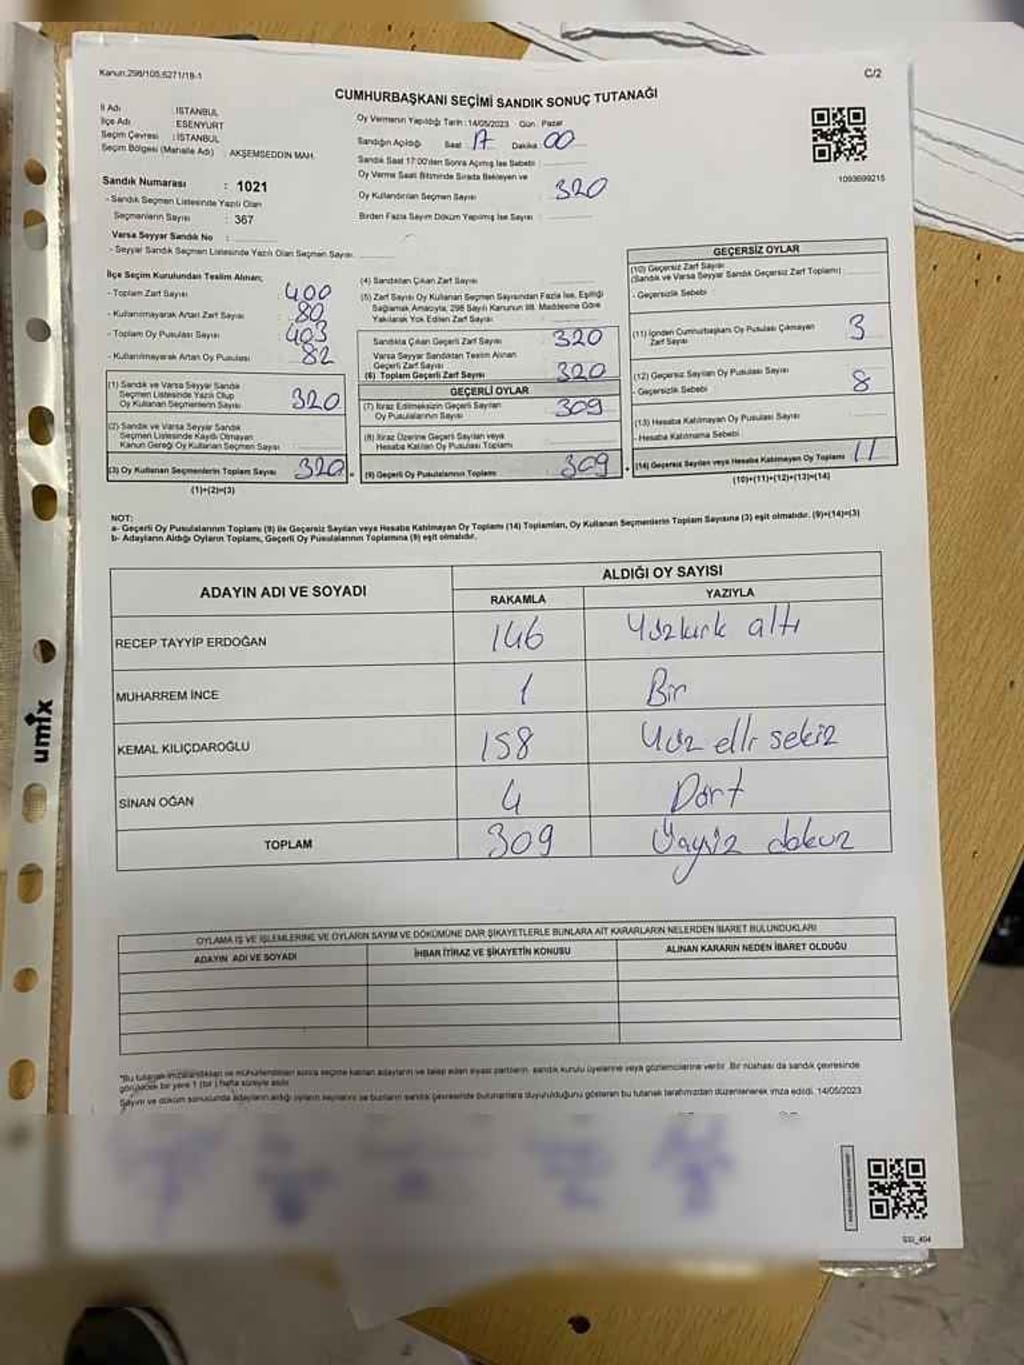 Kanun:298/105,6271/18-1
C/2
CUMHURBAŞKANI SEÇİMİ SANDIK SONUÇ TUTANAĞI
İl Adı : İSTANBUL
İlçe Adı : ESENYURT
Seçim Çevresi : İSTANBUL
Seçim Bölgesi (Mahalle Adı) : AKŞEMSEDDİN MAH.
Oy Vermenin Yapıldığı Tarih : 14/05/2023 Gün : Pazar
Sandığın Açıldığı Saat : 17 Dakika : 00
Sandık Saat 17:00'den Sonra Açılmış İse Sebebi :
Oy Verme Saati Bitiminde Sırada Bekleyen ve
Oy Kullandırılan Seçmen Sayısı : 320
Birden Fazla Sayım Döküm Yapılmış İse Sayısı :
1093699215
Sandık Numarası : 1021
- Sandık Seçmen Listesinde Yazılı Olan
Seçmenlerin Sayısı : 367
Varsa Seyyar Sandık No :
- Seyyar Sandık Seçmen Listesinde Yazılı Olan Seçmen Sayısı
İlçe Seçim Kurulundan Teslim Alınan;
- Toplam Zarf Sayısı : 400
- Kullanılmayarak Artan Zarf Sayısı : 80
- Toplam Oy Pusulası Sayısı : 403
- Kullanılmayarak Artan Oy Pusulası : 82
(1) Sandık ve Varsa Seyyar Sandık
Seçmen Listesinde Yazılı Olup
Oy Kullanan Seçmenlerin Sayısı 320
(2) Sandık ve Varsa Seyyar Sandık
Seçmen Listesinde Kayıtlı Olmayan
Kanun Gereği Oy Kullanan Seçmen Sayısı
(3) Oy Kullanan Seçmenlerin Toplam Sayısı 320
(1)+(2)=(3)
(4) Sandıktan Çıkan Zarf Sayısı :
(5) Zarf Sayısı Oy Kullanan Seçmen Sayısından Fazla İse, Eşitliği
Sağlamak Amacıyla, 298 Sayılı Kanunun 98. Maddesine Göre
Yakılarak Yok Edilen Zarf Sayısı
Sandıkta Çıkan Geçerli Zarf Sayısı : 320
Varsa Seyyar Sandıktan Teslim Alınan
Geçerli Zarf Sayısı
(6) Toplam Geçerli Zarf Sayısı : 320
GEÇERLİ OYLAR
(7) İtiraz Edilmeksizin Geçerli Sayılan
Oy Pusulalarının Sayısı : 309
(8) İtiraz Üzerine Geçerli Sayılan veya
Hesaba Katılan Oy Pusulası Toplamı
(9) Geçerli Oy Pusulalarının Toplamı : 309
GEÇERSİZ OYLAR
(10) Geçersiz Zarf Sayısı
(Sandık ve Varsa Seyyar Sandık Geçersiz Zarf Toplamı)
- Geçersizlik Sebebi :
(11) İçinden Cumhurbaşkanı Oy Pusulası Çıkmayan
Zarf Sayısı 3
(12) Geçersiz Sayılan Oy Pusulası Sayısı
- Geçersizlik Sebebi : 8
(13) Hesaba Katılmayan Oy Pusulası Sayısı
- Hesaba Katılmama Sebebi :
(14) Geçersiz Sayılan veya Hesaba Katılmayan Oy Toplamı 11
(10)+(11)+(12)+(13)=(14)
NOT:
a- Geçerli Oy Pusulalarının Toplamı (9) ile Geçersiz Sayılan veya Hesaba Katılmayan Oy Toplamı (14) Toplamları, Oy Kullanan Seçmenlerin Toplam Sayısına (3) eşit olmalıdır. (9)+(14)=(3)
b- Adayların Aldığı Oyların Toplamı, Geçerli Oy Pusulalarının Toplamına (9) eşit olmalıdır.
ADAYIN ADI VE SOYADI
ALDIĞI OY SAYISI
RAKAMLA YAZIYLA
RECEP TAYYİP ERDOĞAN 146 Yüzkırk altı
MUHARREM İNCE 1 Bir
KEMAL KILIÇDAROĞLU 158 Yüz elli sekiz
SİNAN OĞAN 4 Dört
TOPLAM 309 Üçyüz dokuz
OYLAMA İŞ VE İŞLEMLERİNE VE OYLARIN SAYIM VE DÖKÜMÜNE DAİR ŞİKAYETLERLE BUNLARA AİT KARARLARIN NELERDEN İBARET BULUNDUKLARI
ADAYIN ADI VE SOYADI
İHBAR İTİRAZ VE ŞİKAYETİN KONUSU
ALINAN KARARIN NEDEN İBARET OLDUĞU
*Bu tutanak imzalandıktan ve mühürlendikten sonra seçime katılan adayların ve talep eden siyasi partilerin, sandık kurulu üyelerine veya gözlemcilerine verilir. Bir nüshası da sandık çevresinde
görülecek bir yere 1 (bir) hafta süreyle asılır.
Sayım ve döküm sonucunda adayların aldığı oyların sayılarını ve bunların sandık çevresinde bulunanlara duyurulduğunu gösteren bu tutanak tarafımızdan düzenlenerek imza edildi. 14/05/2023
umix